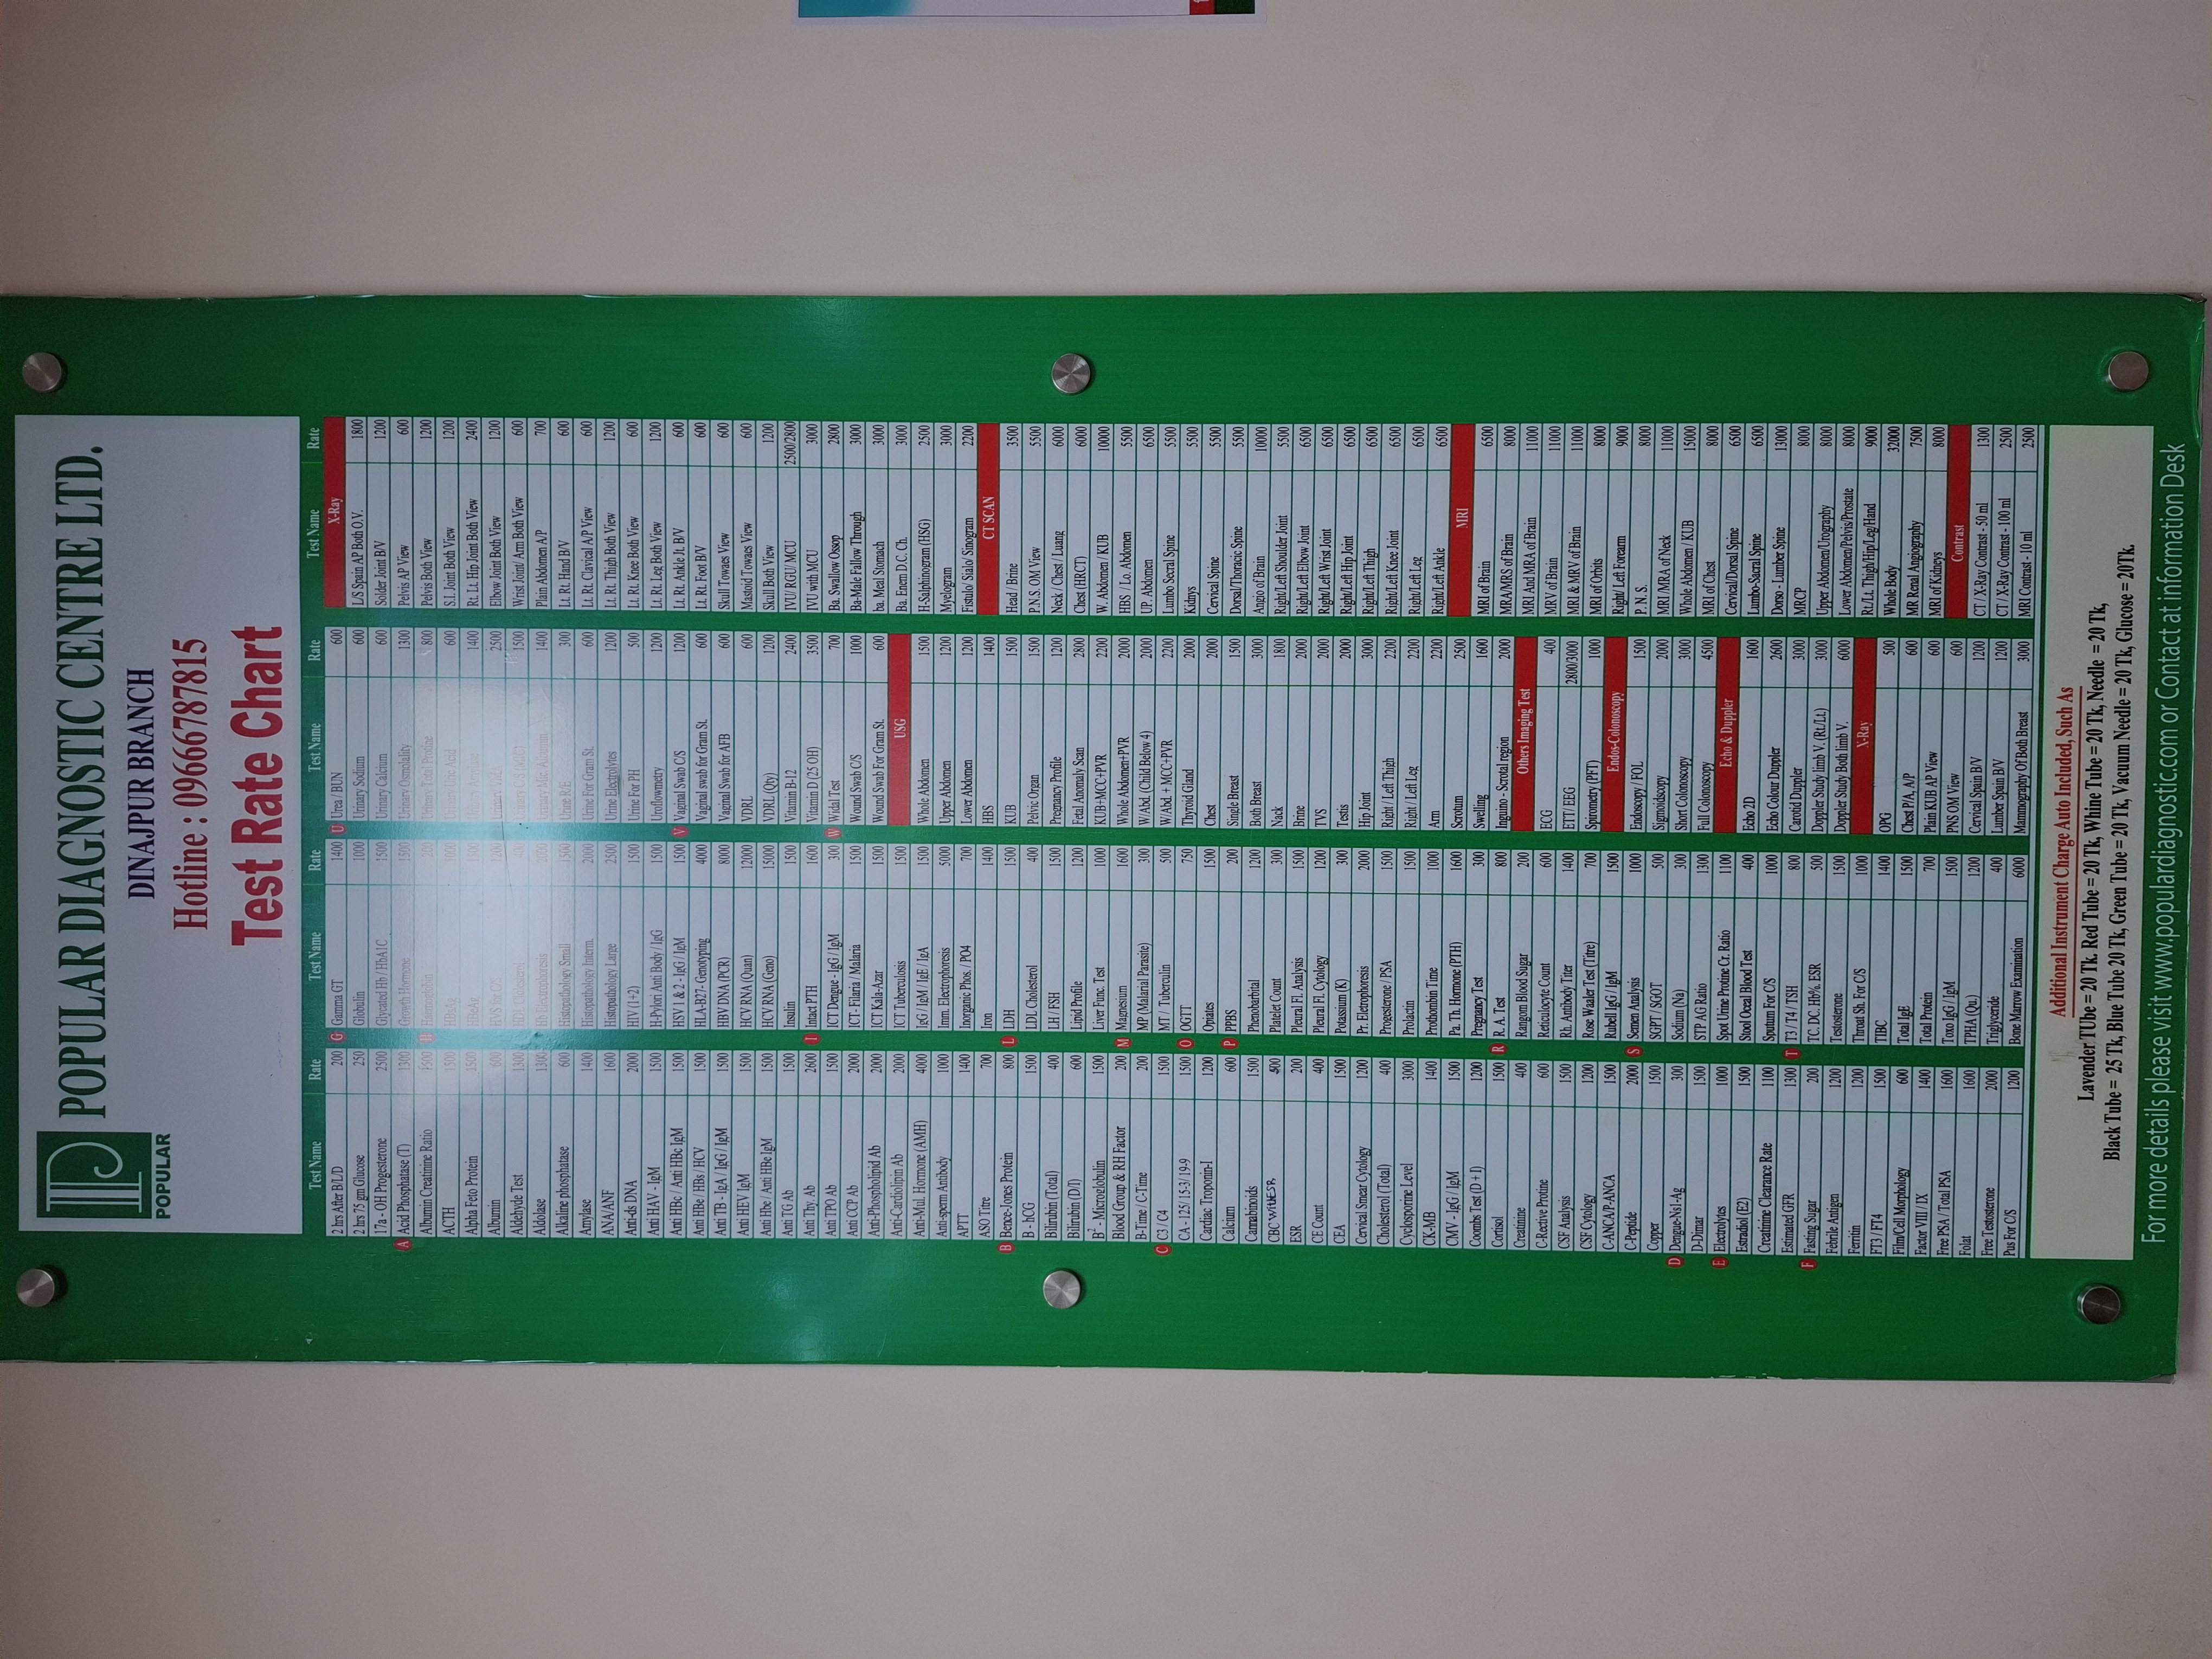 POPULAR
POPULAR DIAGNOSTIC CENTRE LTD.
DINAJPUR BRANCH
Hotline : 09666787815
Test Rate Chart
Test Name Rate
2 hrs After B/L/D 200
2 hrs 75 gm Glucose 250
17a - OH Progesterone 2500
A Acid Phosphatase (T) 1300
Albumin Creatinine Ratio 1500
ACTH 1500
Alpha Feto Protein 1500
Albumin 600
Aldehyde Test 1300
Aldolase 1300
Alkaline phosphatase 600
Amylase 1400
ANA/ANF 1600
Anti-ds DNA 2000
Anti HAV - IgM 1500
Anti HBc / Anti HBc IgM 1500
Anti HBe / HBs / HCV 1500
Anti TB - IgA / IgG / IgM 1500
Anti HEV IgM 1500
Anti Hbe / Anti HBe IgM 1500
Anti TG Ab 1500
Anti Thy. Ab 2600
Anti TPO Ab 1500
Anti CCP Ab 2000
Anti-Phospholipid Ab 2000
Anti-Cardiolipin Ab 2000
Anti-Mul. Hormone (AMH) 4000
Anti-sperm Antibody 1000
APTT 1400
ASO Titre 700
B Bence-Jones Protein 800
B - hCG 1500
Bilirubin (Total) 400
Bilirubin (D/I) 600
B² - Microglobulin 1500
Blood Group & RH Factor 200
B-Time / C-Time 200
C C3 / C4 1500
CA - 125/ 15-3/ 19-9 1500
Cardiac Troponin-I 1200
Calcium 600
Cannabinoids 1500
CBC With ESR 400
ESR 200
CE Count 400
CEA 1500
Cervical Smear Cytology 1200
Cholesterol (Total) 400
Cyclosporine Level 3000
CK-MB 1400
CMV - IgG / IgM 1500
Coombs Test (D + I) 1200
Cortisol 1500
Creatinine 400
C-Rective Protine 600
CSF Analysis 1500
CSF Cytology 1200
C-ANCA/P-ANCA 1500
C-Peptide 2000
Copper 1500
D Dengue-Ns1-Ag 300
D-Dimar 1500
E Electrolytes 1000
Estradiol (E2) 1500
Creatinine Clearance Rate 1100
Estimated GFR 1300
F Fasting Sugar 200
Febrile Antigen 1200
Ferritin 1200
FT3 / FT4 1500
Film/Cell Morphology 600
Factor VIII / IX 1400
Free PSA / Total PSA 1600
Folat 1600
Free Testosterone 2000
Pus For C/S 1200
Test Name Rate
G Gamma GT 1400
Globulin 1000
Glycated Hb / HbA1C 1500
Growth Hormone 1500
H
Histopathology Small 1500
Histopathology Interm. 2000
Histopathology Large 2500
HIV (1+2) 1500
H-Pylori Anti Body / IgG 1500
HSV 1 & 2 - IgG / IgM 1500
HLA-B27- Genotyping 4000
HBV DNA (PCR) 8000
HCV RNA (Quan) 12000
HCV RNA (Geno) 15000
Insulin 1500
I Intact PTH 1600
ICT Dengue - IgG / IgM 300
ICT - Filaria / Malaria 1500
ICT Kala-Azar 1500
ICT Tuberculosis 1500
IgG / IgM / IgE / IgA 1500
Imm. Electrophoresis 5000
Inorganic Phos. / PO4 700
Iron 1400
L LDH 1500
LDL Cholesterol 400
LH / FSH 1500
Lipid Profile 1200
Liver Func. Test 1000
M Magnesium 1600
MP (Malarial Parasite) 300
MT / Tuberculin 500
O OGTT 750
Opiates 1500
P PPBS 200
Phenobarbital 1200
Platelet Count 300
Pleural Fl. Analysis 1500
Pleural Fl. Cytology 1200
Potassium (K) 300
Pr. Eletrophoresis 2000
Progesterone / PSA 1500
Prolactin 1500
Prothombin Time 1000
Pa. Th. Hormone (PTH) 1600
Pregnancy Test 300
R R. A. Test 800
Random Blood Sugar 200
Reticulocyte Count 600
Rh. Antibody Titer 1400
Rose Waaler Test (Titre) 700
Rubell IgG / IgM 1500
S Semen Analysis 1000
SGPT / SGOT 500
Sodium (Na) 300
STP AG Ratio 1300
Spot Urine Protine Cr. Ratio 1100
Stool Occeal Blood Test 400
Sputum For C/S 1000
T T3 / T4 / TSH 800
TC. DC. Hb%. ESR 500
Testosterone 1500
Throat Sh. For C/S 1000
TIBC 1400
Total IgE 1500
Total Protein 700
Toxo IgG / IgM 1500
TPHA (Qu.) 1200
Triglyceride 400
Bone Marrow Examination 6000
Test Name Rate
U Urea / BUN 600
Urinary Sodium 600
Urinary Calcium 600
Urinary Osmolality 1300
Urinary Total Protine 800
600
1400
2500
1500
1400
Urine R/E 300
Urine For Gram St. 600
Urine Electrolytes 1200
Urine For PH 500
Uroflowmetry 1200
V Vaginal Swab C/S 1200
Vaginal swab for Gram St. 600
Vaginal Swab for AFB 600
VDRL 600
VDRL (Qty) 1200
Vitamin B-12 2400
Vitamin D (25 OH) 3500
W Widal Test 700
Wound Swab C/S 1000
Wound Swab For Gram St. 600
USG
Whole Abdomen 1500
Upper Abdomen 1200
Lower Abdomen 1200
HBS 1400
KUB 1500
Pelvic Organ 1500
Pregnancy Profile 1200
Fetal Anomaly Scan 2800
KUB+MCC+PVR 2200
Whole Abdomen+PVR 2000
W/Abd. (Child Below 4) 2000
W/Abd. + MCC+PVR 2200
Thyroid Gland 2000
Chest 2000
Single Breast 1500
Both Breast 3000
Nack 1800
Brine 2000
TVS 2000
Testis 2000
Hip Joint 3000
Right / Left Thigh 2200
Right / Left Leg 2200
Arm 2200
Scrotum 2500
Swelling 1600
Inguino - Scrotal region 2000
Others Imaging Test
ECG 400
ETT/ EEG 2800/3000
Spirometry (PFT) 1000
Endos-Colonoscopy
Endoscopy / FOL 1500
Sigmoidscopy 2000
Short Colonoscopy 3000
Full Colonoscopy 4500
Echo & Duppler
Echo 2D 1600
Echo Colour Duppler 2600
Carotid Duppler 3000
Doppler Study limb V. (Rt./Lt.) 3000
Doppler Study Both limb V. 6000
X-Ray
OPG 500
Chest P/A, A/P 600
Plain KUB AP View 600
PNS OM View 600
Cervical Spain B/V 1200
Lumber Spain B/V 1200
Mammography Of Both Breast 3000
Test Name Rate
X-Ray
L/S Spain AP Both O.V. 1800
Solder Joint B/V 1200
Pelvis AP View 600
Pelvis Both View 1200
S.I. Joint Both View 1200
Rt. Lt. Hip Joint Both View 2400
Elbow Joint Both View 1200
Wrist Joint/ Arm Both View 600
Plain Abdomen A/P 700
Lt. Rt. Hand B/V 600
Lt. Rt. Clavical A/P View 600
Lt. Rt. Thigh Both View 1200
Lt. Rt. Knee Both View 600
Lt. Rt. Leg Both View 1200
Lt. Rt. Ankle Jt. B/V 600
Lt. Rt. Foot B/V 600
Skull Towaes View 600
Mastoid Towaes View 600
Skull Both View 1200
IVU/ RGU/ MCU 2500/2800
IVU with MCU 3000
Ba. Swallow Ossop 2800
Ba-Male Fallow Through 3000
ba. Meal Stomach 3000
Ba. Enem D.C. Ch. 3000
H-Salphinogram (HSG) 2500
Myelogram 3000
Fistulo/ Sialo/ Sinogram 2200
CT SCAN
Head / Brine 3500
P.N.S. OM View 5500
Neck / Chest / Luang 6000
Chest (HRCT) 6000
W. Abdomen / KUB 10000
HBS / Lo. Abdomen 5500
UP. Abdomen 6500
Lumbo Secral Spine 5500
Kidnys 5500
Cervical Spine 5500
Dorsal/Thoracic Spine 5500
Angio of Brain 10000
Right/Left Shoulder Joint 5500
Right/Left Elbow Joint 6500
Right/Left Wrist Joint 6500
Right/Left Hip Joint 6500
Right/Left Thigh 6500
Right/Left Knee Joint 6500
Right/Left Leg 6500
Right/Left Ankle 6500
MRI
MRI of Brain 6500
MRA/MRS of Brain 8000
MRI And MRA of Brain 11000
MRV of Brain 11000
MRI & MRV of Brain 11000
MRI of Orbits 8000
Right/ Left Forearm 9000
P. N. S. 8000
MRI /MRA of Neck 11000
Whole Abdomen / KUB 15000
MRI of Chest 8000
Cervical/Dorsal Spine 6500
Lumbo-Sacral Spine 6500
Dorso - Lumber Spine 13000
MRCP 8000
Upper Abdomen/Urography 8000
Lower Abdomen/Pelvis/Prostate 8000
Rt./Lt. Thigh/Hip/Leg/Hand 9000
Whole Body 32000
MR Renal Angiography 7500
MRI of Kidneys 8000
Contrast
CT / X-Ray Contrast - 50 ml 1300
CT / X-Ray Contrast - 100 ml 2500
MRI Contrast - 10 ml 2500
Additional Instrument Charge Auto Included, Such As
Lavender TUbe = 20 Tk. Red Tube = 20 Tk, Whine Tube = 20 Tk, Needle = 20 Tk,
Black Tube = 25 Tk, Blue Tube 20 Tk, Green Tube = 20 Tk, Vacuum Needle = 20 Tk, Glucose = 20 Tk.
For more details please visit www.populardiagnostic.com or Contact at Information Desk